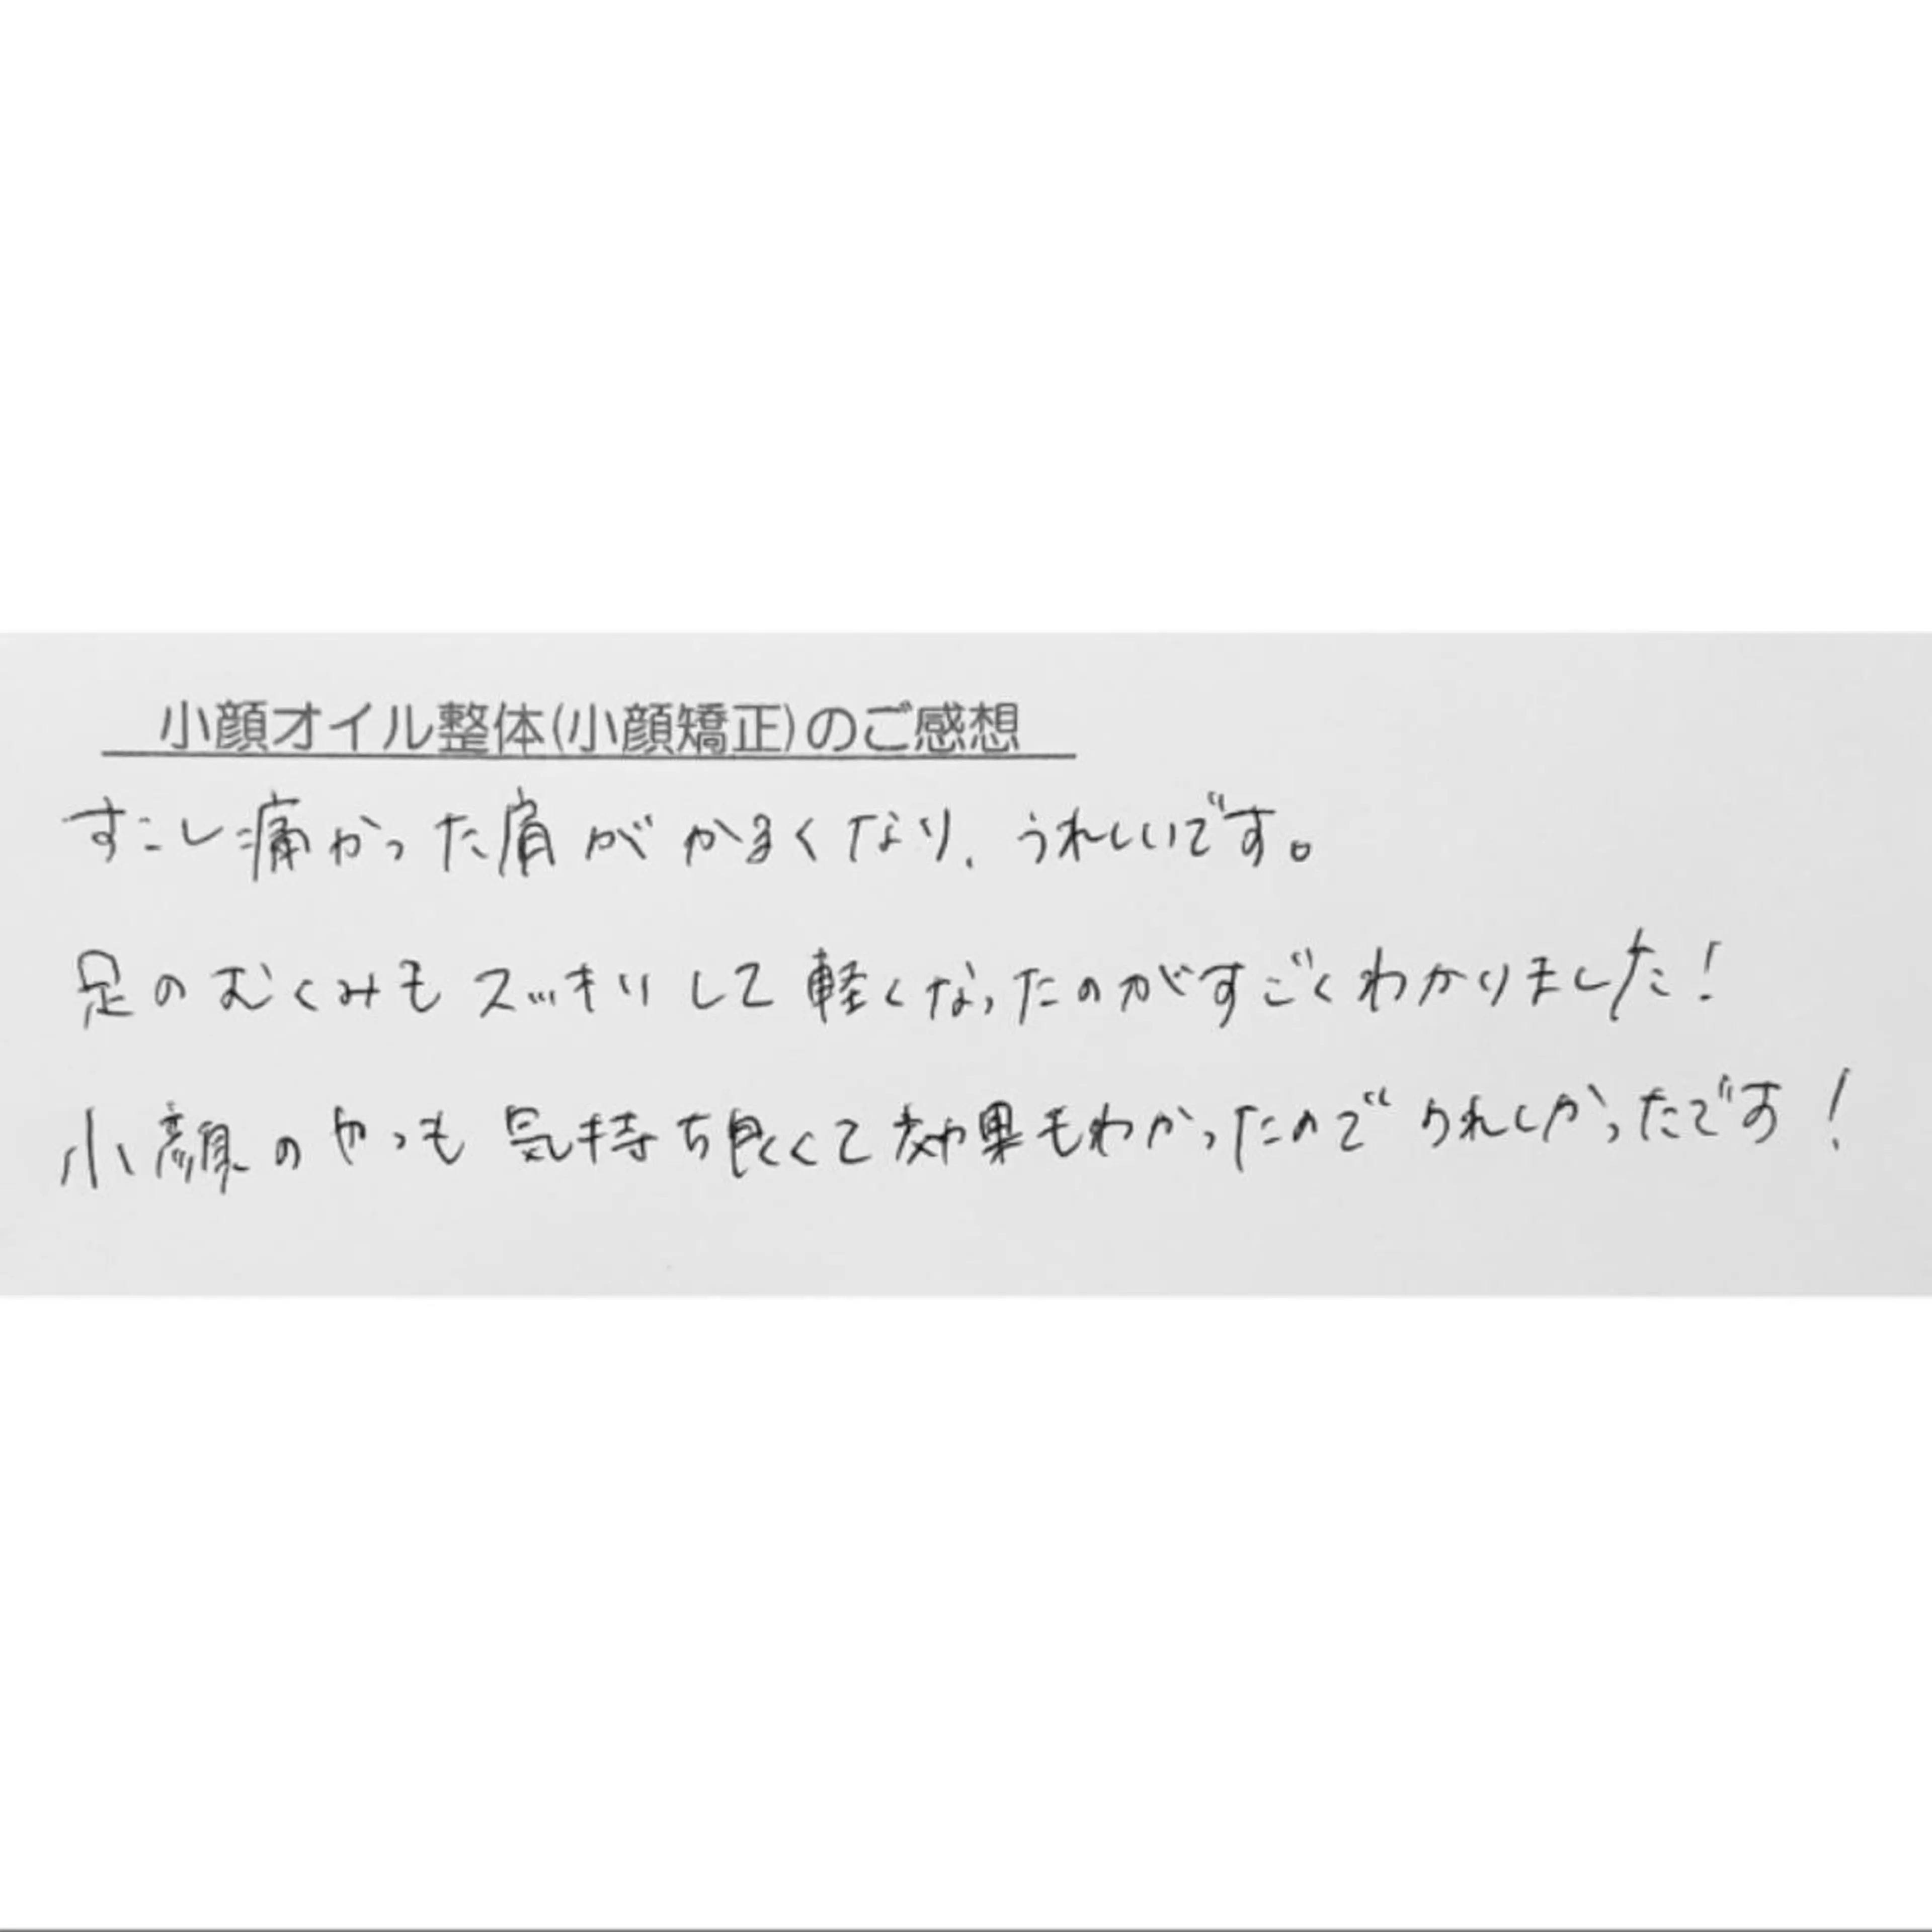 小顔オイル整体(小顔矯正)のご感想
すこし痛かった肩がかるくなり、うれしいです。
足のむくみもスッキリして軽くなったのがすごくわかりました!
小顔のやつも気持ち良くて効果もわかったのでうれしかったです!